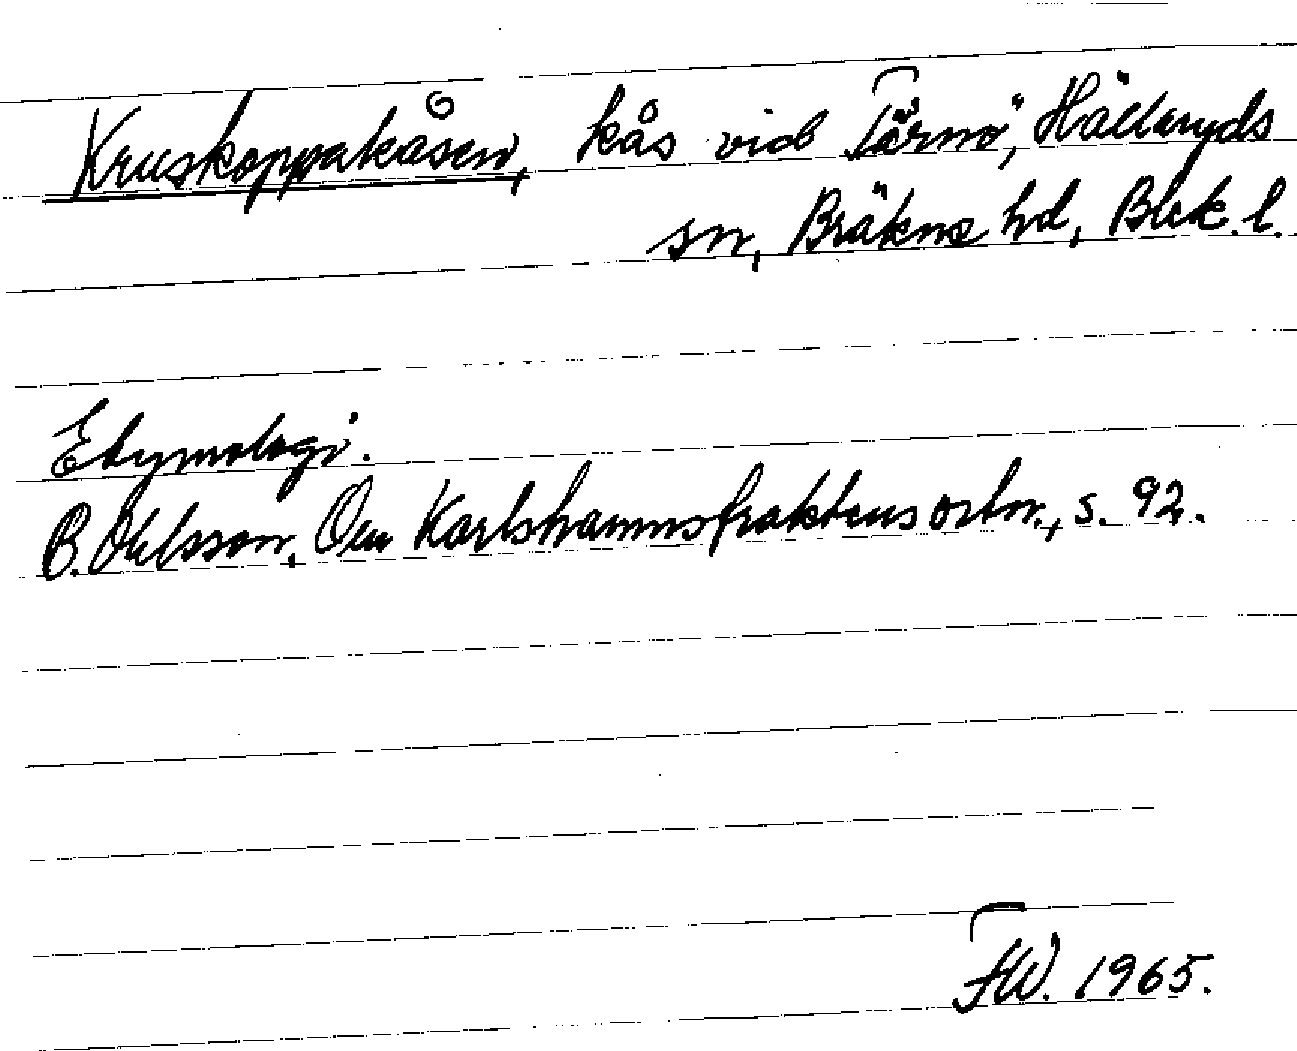 Kruskoppakåsen, kås vid Tärnö, Hällaryds
sn, Bräkne hd, Blek. l.
Etymologi.
B. Ohlsson, Om Karlshamnstraktens ortn., s. 92.
FW. 1965.